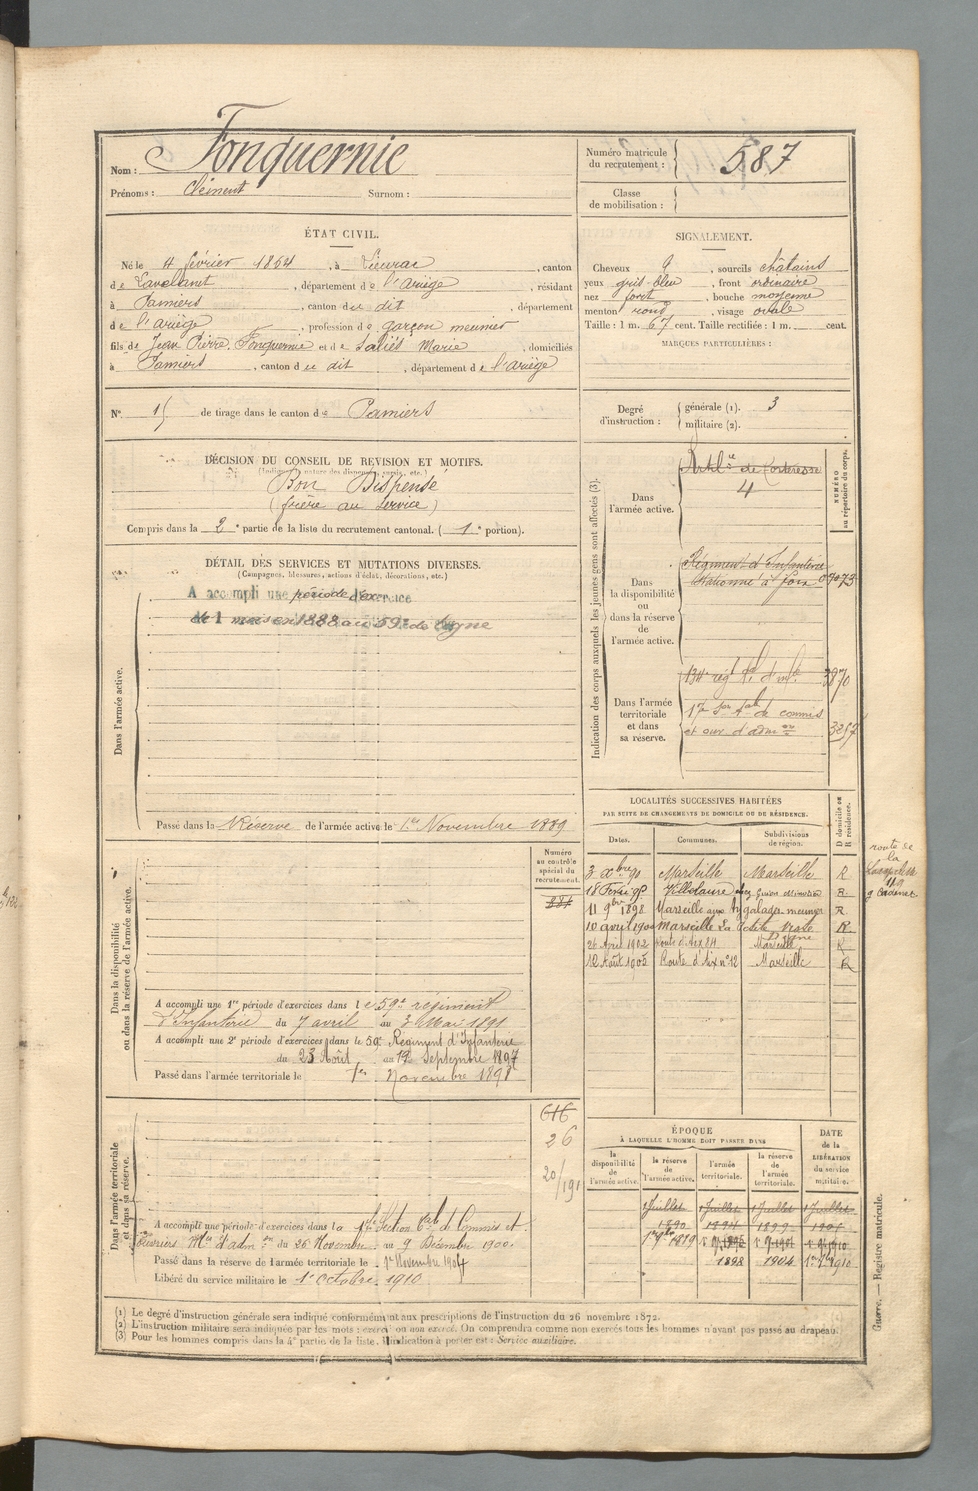 Nom : Fonquernie
Prénoms : Clément Surnom :
Numéro matricule du recrutement : 587
Classe de mobilisation :
ÉTAT CIVIL.
Né le 4 février 1864, à Lieurac, canton
de Lavelanet, département de l'ariège, résidant
à Pamiers, canton du dit, département
de l'ariège, profession de garçon meunier
fils de Jean Pierre Fonquernie et de Saliés Marie, domiciliés
à Pamiers, canton du dit, département de l'ariège
N° 15 de tirage dans le canton de Pamiers
SIGNALEMENT.
Cheveux, sourcils châtains
yeux gris-bleu, front ordinaire
nez fort, bouche moyenne
menton rond, visage ovale
Taille : 1 m. 67 cent. Taille rectifiée : 1 m. cent.
MARQUES PARTICULIÈRES :
Degré d'instruction : générale (1). 3
militaire (2).
DÉCISION DU CONSEIL DE REVISION ET MOTIFS.
Bon Dispensé
(frère au service)
Compris dans la 2e partie de la liste du recrutement cantonal. (1e portion).
DÉTAIL DES SERVICES ET MUTATIONS DIVERSES.
(Campagnes, blessures, actions d'éclat, décorations, etc.)
A accompli une période d'exercice
de 1 mois en 1888 au 59e de ligne
Dans l'armée active.
Passé dans la Réserve de l'armée active le 1er Novembre 1889
Indication des corps auxquels les jeunes gens sont affectés (3).
NUMÉRO au répertoire du corps.
Dans l'armée active.
Artilie de forteresse
4
Dans la disponibilité ou dans la réserve de l'armée active.
Régiment d'Infanterie
Stationné à foix
134e régt d'infie 3870
Dans l'armée territoriale et dans sa réserve.
17e Son de commis
et ouv d'admon 3257
LOCALITÉS SUCCESSIVES HABITÉES
PAR SUITE DE CHANGEMENTS DE DOMICILE OU DE RÉSIDENCE.
D domicile ou R résidence.
Dates. Communes. Subdivisions de région.
3 xbre 90 Marseille Marseille R
Villelaure R
11 9bre 1898 Marseille aux Aygalades meunier R
10 avril 1900 Marseille La Petite Viste R
26 Avril 1902 Route d'Aix 84 Marseille R
12 Août 1905 Route d'Aix n°12 Marseille R
route de
la
Dans la disponibilité ou dans la réserve de l'armée active.
Numéro au contrôle spécial du recrutement.
A accompli une 1re période d'exercices dans le 59e régiment
d'Infanterie du 7 avril au 3 Mai 1891
A accompli une 2e période d'exercices dans le 59e Régiment d'Infanterie
du 23 Août au 19 Septembre 1897
Passé dans l'armée territoriale le 1er Novembre 1898
Dans l'armée territoriale et dans sa réserve.
616
26
A accompli une période d'exercices dans la 17e Section de Commis et
Ouvriers d'admon du 26 Novembre au 9 Décembre 1900.
Passé dans la réserve de l'armée territoriale le 1er Novembre 1904
Libéré du service militaire le 1er octobre 1910
ÉPOQUE
À LAQUELLE L'HOMME DOIT PASSER DANS
la disponibilité de l'armée active. la réserve de l'armée active. l'armée territoriale. la réserve de l'armée territoriale.
DATE de la LIBÉRATION du service militaire.
1 Juillet 1890 1 Juillet 1 Juillet 1899 1 Juillet
1889
1898 1904 1910
(1) Le degré d'instruction générale sera indiqué conformément aux prescriptions de l'instruction du 26 novembre 1872.
(2) L'instruction militaire sera indiquée par les mots : exercé ou non exercé. On comprendra comme non exercés tous les hommes n'ayant pas passé au drapeau.
(3) Pour les hommes compris dans la 4e partie de la liste, l'indication à porter est : Service auxiliaire.
Guerre. — Registre matricule.